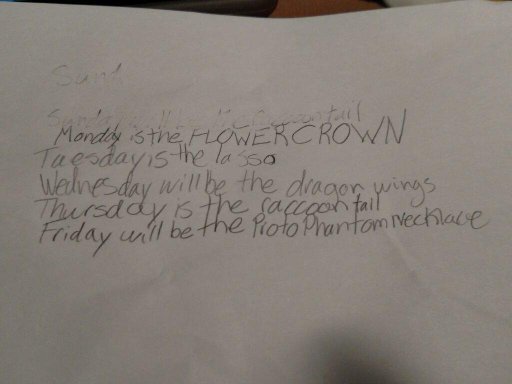 Sund
Sunday will be the raccoon tail
Monday is the FLOWER CROWN
Tuesday is the lasso
Wednesday will be the dragon wings
Thursday is the raccoon tail
Friday will be the Proto Phantom necklace